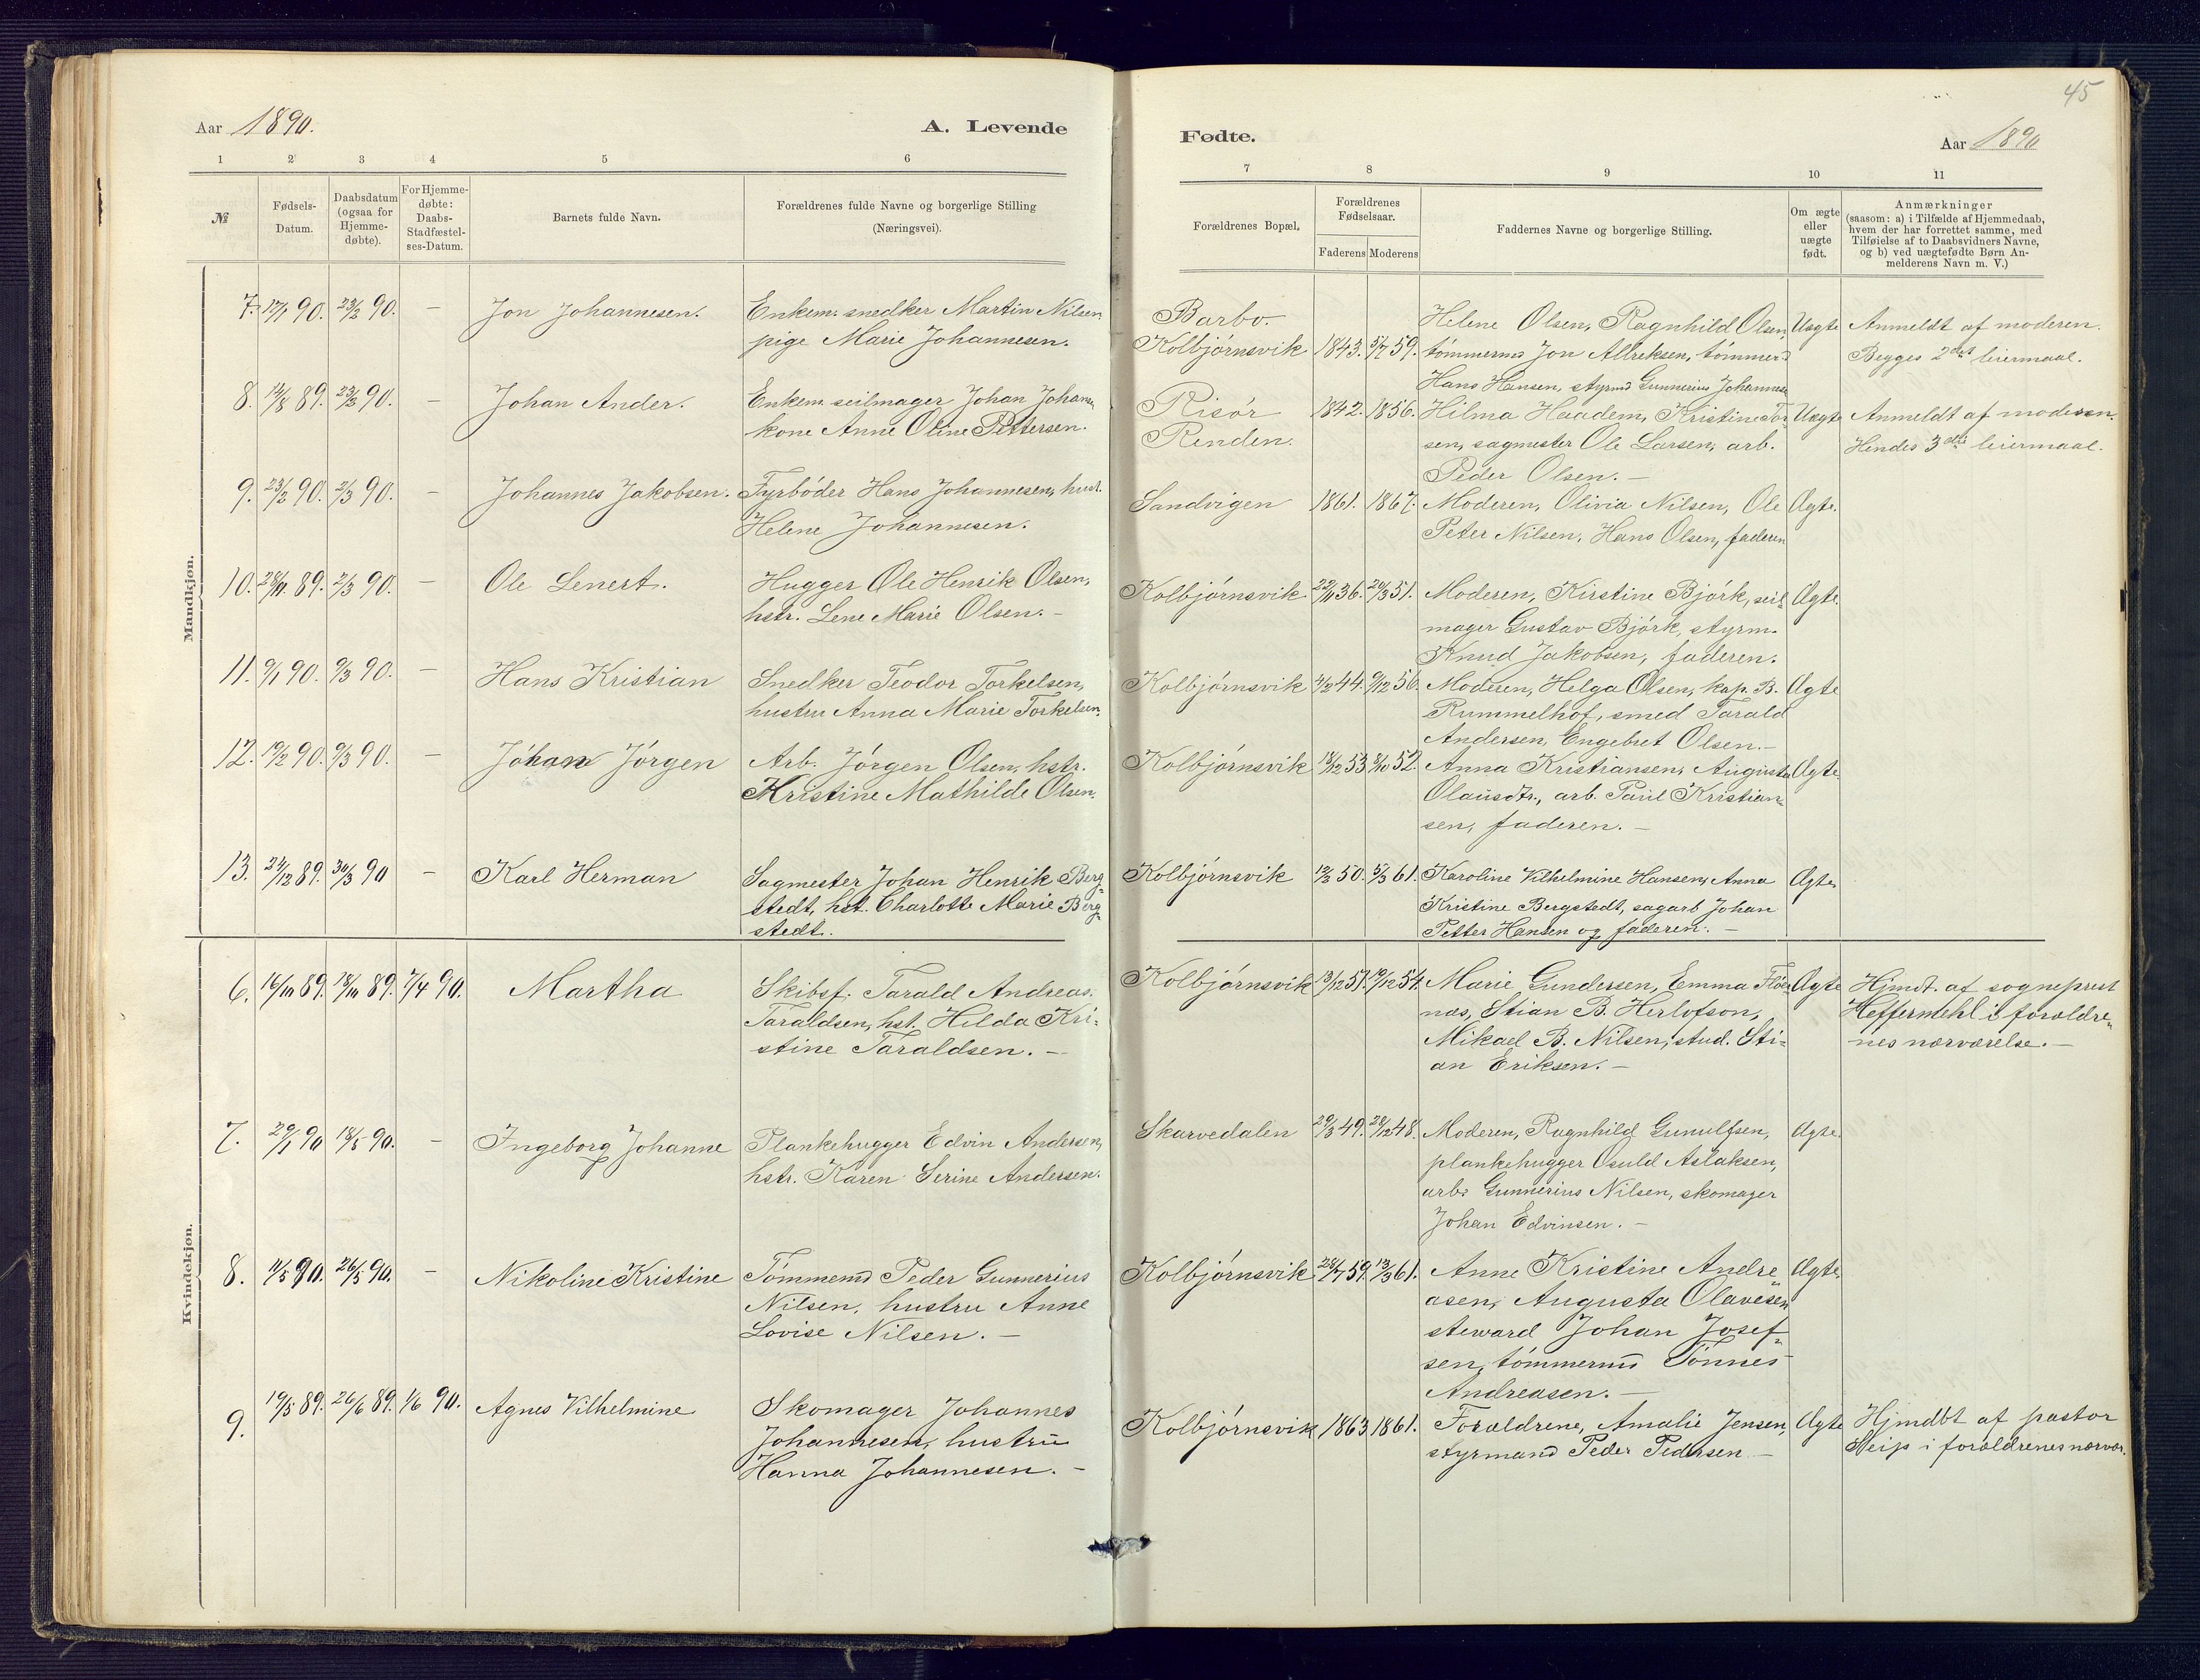 45
Aar 1890.
A. Levende
Fødte.
Aar 1890
1 2 3 4 5 6 7 8 9 10 11
№
Fødsels-
Datum.
Daabsdatum
(ogsaa for
Hjemme-
døbte).
For Hjemme-
døbte:
Daabs-
Stadfæstel-
ses-Datum.
Barnets fulde Navn.
Forældrenes fulde Navne og borgerlige Stilling
(Næringsvei).
Forældrenes Bopæl.
Forældrenes
Fødselsaar.
Faderens Moderens
Faddernes Navne og borgerlige Stilling.
Om ægte
eller
uægte
født.
Anmærkninger
(saasom: a) i Tilfælde af Hjemmedaab,
hvem der har forrettet samme, med
Tilføielse af to Daabsvidners Navne,
og b) ved uægtefødte Børn An-
melderens Navn m. V.)
Mandkjøn.
7. 17/1 90. 23/2 90. — Jon Johannesen. Enkem. snedker Martin Nilsen
pige Marie Johannesen.
Barbo.
Kolbjørnsvik 1843. 5/7 59.
Helene Olsen, Ragnhild Olsen,
tømmermd Jon Allreksen, tømmermd
Hans Hansen, styrmd Gunnerius Johannesen
Uægte
Anmeldt af moderen.
Begges 2det leiermaal.
8. 14/8 89. 23/3 90. — Johan Ander. Enkem. seilmager Johan Johansen
kone Anne Oline Pettersen.
Risør
Renden.
1842. 1856.
Hilma Haadem, Kristine
sen, sagmester Ole Larsen, arb.
Peder Olsen. —
Uægte
Anmeldt af moderen.
Hendes 3die leiermaal.
9. 23/2 90. 2/3 90. — Johannes Jakobsen. Fyrbøder Hans Johannesen, hust.
Helene Johannesen.
Sandvigen 1861. 1867.
Moderen, Olivia Nilsen, Ole
Peter Nilsen, Hans Olsen, faderen
Ægte.
10. 28/11 89. 2/3 90. — Ole Lenert. Hugger Ole Henrik Olsen,
hstr. Lene Marie Olsen. —
Kolbjørnsvik 22/11 36. 20/3 51.
Moderen, Kirstine Bjørk, seil-
mager Gustav Bjørk, styrm.
Knud Jakobsen, faderen.
Ægte.
11. 9/1 90. 9/3 90. — Hans Kristian Snedker Teodor Torkelsen,
hustru Anna Marie Torkelsen.
Kolbjørnsvik 4/2 44. 9/12 56.
Moderen, Helga Olsen, kap. B.
Rummelhof, smed Tarald
Andersen, Engebret Olsen. —
Ægte
12. 19/2 90. 9/3 90. — Johan Jørgen Arb. Jørgen Olsen, hstr.
Kristine Mathilde Olsen.
Kolbjørnsvik 18/12 53 8/10 52.
Anna Kristiansen, Augusta
Olausdtr., arb. Paul Kristian-
sen, faderen. —
Ægte
13. 24/12 89. 30/3 90 — Karl Herman Sagmester Johan Henrik Berg-
stedt, hst. Charlotte Marie Berg-
stedt.
Kolbjørnsvik 12/3 50. 5/3 61.
Karoline Vilhelmine Hansen, Anna
Kristine Bergstedt, sagarb Johan
Petter Hansen og faderen. —
Ægte
Kvindekjøn.
6. 16/10 89. 18/10 89. 7/4 90. Martha Skibsf. Tarald Andreas
Taraldsen, hst. Hilda Kri-
stine Taraldsen. —
Kolbjørnsvik 13/12 51. 19/12 54.
Marie Gundersen, Emma Fløe-
næs, Stian B. Herlofson,
Mikael B. Nilsen, stud. Sti-
an Eriksen. —
Ægte
Hjmdt. af sogneprest
Heffermehl i forældre-
nes nærværelse. —
7. 29/1 90 18/5 90. — Ingeborg Johanne Plankehugger Edvin Andersen,
hstr. Karen Serine Andersen.
Skarvedalen 29/3 49. 28/12 48.
Moderen, Ragnhild Gunulfsen,
plankehugger Osuld Aslaksen,
arb. Gunnerius Nilsen, skomager
Johan Edvinsen. —
Ægte.
8. 11/5 90. 26/5 90. — Nikoline Kristine Tømmermd Peder Gunnerius
Nilsen, hustru Anne
Lovise Nilsen. —
Kolbjørnsvik 28/7 59. 13/3 61.
Anne Kristine Andre-
asen, Augusta Olavesen
steward Johan Josef-
sen, tømmermd Tønnes
Andreasen. —
Ægte
9. 19/5 89. 26/6 89. 1/6 90. Agnes Vilhelmine Skomager Johannes
Johannesen, hustru
Hanna Johannesen. —
Kolbjørnsvik 1863 1861.
Forældrene, Amalie Jensen,
styrmand Peder Pedersen —
Ægte
Hjmdbt af pastor
Seip i forældrenes nærvær.